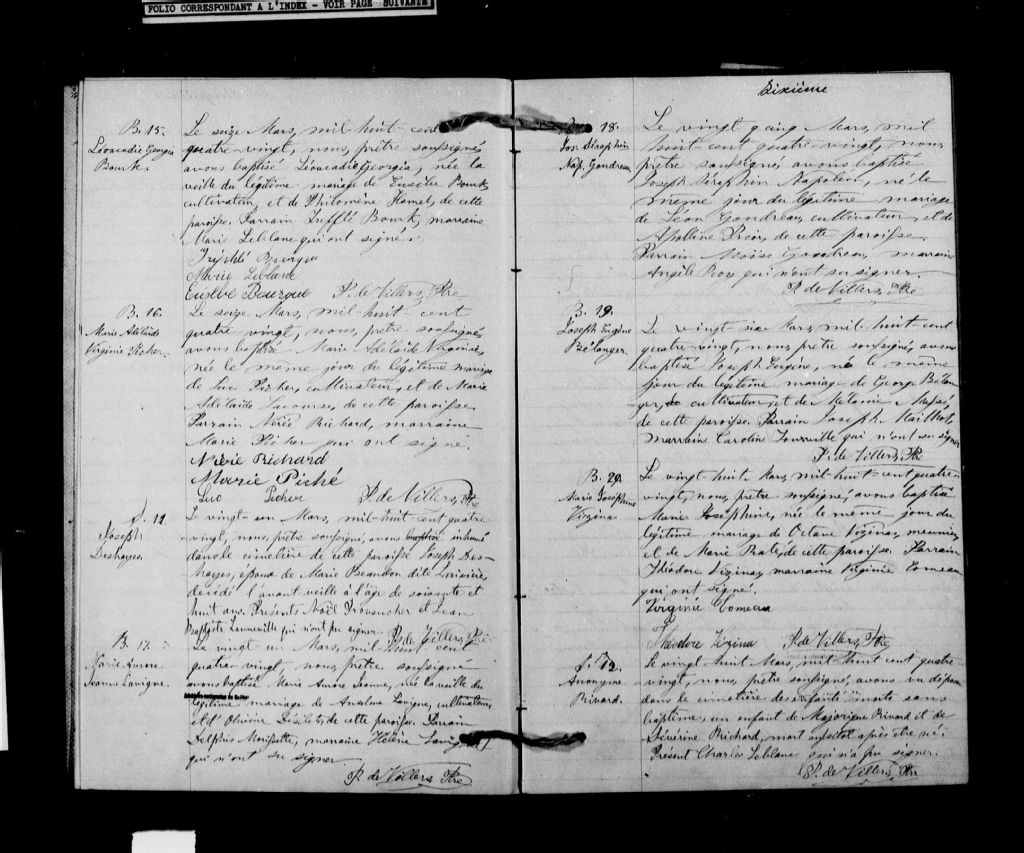 FOLIO CORRESPONDANT A L'INDEX - VOIR PAGE SUIVANTE
B. 15.
Léocadie Georgia
Bourk.
Le seize Mars, mil-huit-cent
quatre-vingt, nous, prêtre soussigné,
avons baptisé Léocadie Georgia, née la
veille du légitime mariage de Eusèbe Bourk
cultivateur, et de Philomène Hamel, de cette
paroisse. Parrain Trefflé Bourk, marraine
Marie Leblanc qui ont signé.
Trefflé Bourque
Marie Leblanc
Eusèbe Bourque P. de Villers, Ptre
B. 16.
Marie Adélaïde
Virginie Picher.
Le seize Mars, mil-huit-cent
quatre-vingt, nous, prêtre soussigné,
avons baptisé Marie Adélaïde Virginie,
née le même jour du légitime mariage
de Luc Picher, cultivateur, et de Marie
Adélaïde Lacourse, de cette paroisse.
Parrain Nérée Richard, marraine
Marie Picher qui ont signé.
Nérée Richard
Marie Piché
Luc Picher P. de Villers, Ptre
S. 11.
Joseph
Deshayes.
Le vingt-un Mars, mil-huit-cent quatre-
vingt, nous, prêtre soussigné, avons inhumé
dans le cimetière de cette paroisse Joseph Des-
hayes, époux de Marie Beaudon dit Larivière,
décédé l'avant veille à l'âge de soixante et
huit ans. Présents Noël Provencher et Jean
Baptiste Tourville qui n'ont pu signer. P. de Villers, Ptre
B. 17.
Marie Aurore
Jeanne Lavigne.
Le vingt-un Mars, mil-huit-cent
quatre-vingt, nous, prêtre soussigné
avons baptisé Marie Aurore Jeanne, née la veille du
légitime mariage de Anselme Lavigne, cultivateur,
et d'Olivine Désilets, de cette paroisse. Parrain
Delphis Morissette, marraine Hélène Lavigne
qui n'ont su signer.
P. de Villers, Ptre
Sixième
18.
Jos. Séraphin
Nap. Goudreau.
Le vingt-cinq Mars, mil
huit-cent quatre-vingt, nous,
prêtre soussigné, avons baptisé
Joseph Séraphin Napoléon, né le
même jour du légitime mariage
de Léon Goudreau, cultivateur, et de
Apolline Prin, de cette paroisse.
Parrain Moïse Goudreau, marraine
Angèle Roy qui n'ont su signer.
P. de Villers, Ptre
B. 19.
Joseph Eugène
Bélanger.
Le vingt-six Mars, mil-huit-cent
quatre-vingt, nous, prêtre soussigné, avons
baptisé Joseph Eugène, né le même
jour du légitime mariage de George Bélan-
ger, cultivateur, et de Mélanie
de cette paroisse. Parrain Joseph Mailhot,
marraine Caroline Tourville qui n'ont su signer
P. de Villers, Ptre
B. 20.
Marie Josephine
Vizina
Le vingt-huit Mars, mil-huit-cent quatre-
vingt, nous, prêtre soussigné, avons baptisé
Marie Josephine, née le même jour du
légitime mariage de Octave Vizina, meunier,
et de Marie, de cette paroisse. Parrain
Théodore Vizina, marraine Virginie Comeau
qui ont signé.
Virginie Comeau
Théodore Vizina P. de Villers, Ptre
S. 12.
Anonyme
Rivard.
Le vingt-huit Mars, mil-huit-cent quatre-
vingt, nous, prêtre soussigné, avons vu déposer
dans le cimetière des enfants morts sans
baptême, un enfant de Majorique Rivard et de
Séverine Richard, mort aussitôt après être né.
Présent Charles Leblanc qui n'a pu signer.
P. de Villers, Ptre